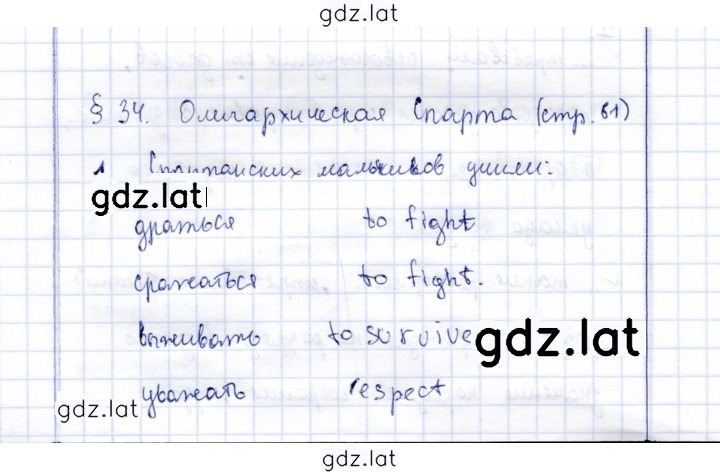 gdz.lat
§ 34. Олигархическая Спарта (стр. 61)
1 Спартанских мальчиков учили:
gdz.lat
драться to fight
сражаться to fight.
выживать to survive
gdz.lat
уважать respect
gdz.lat
gdz.lat